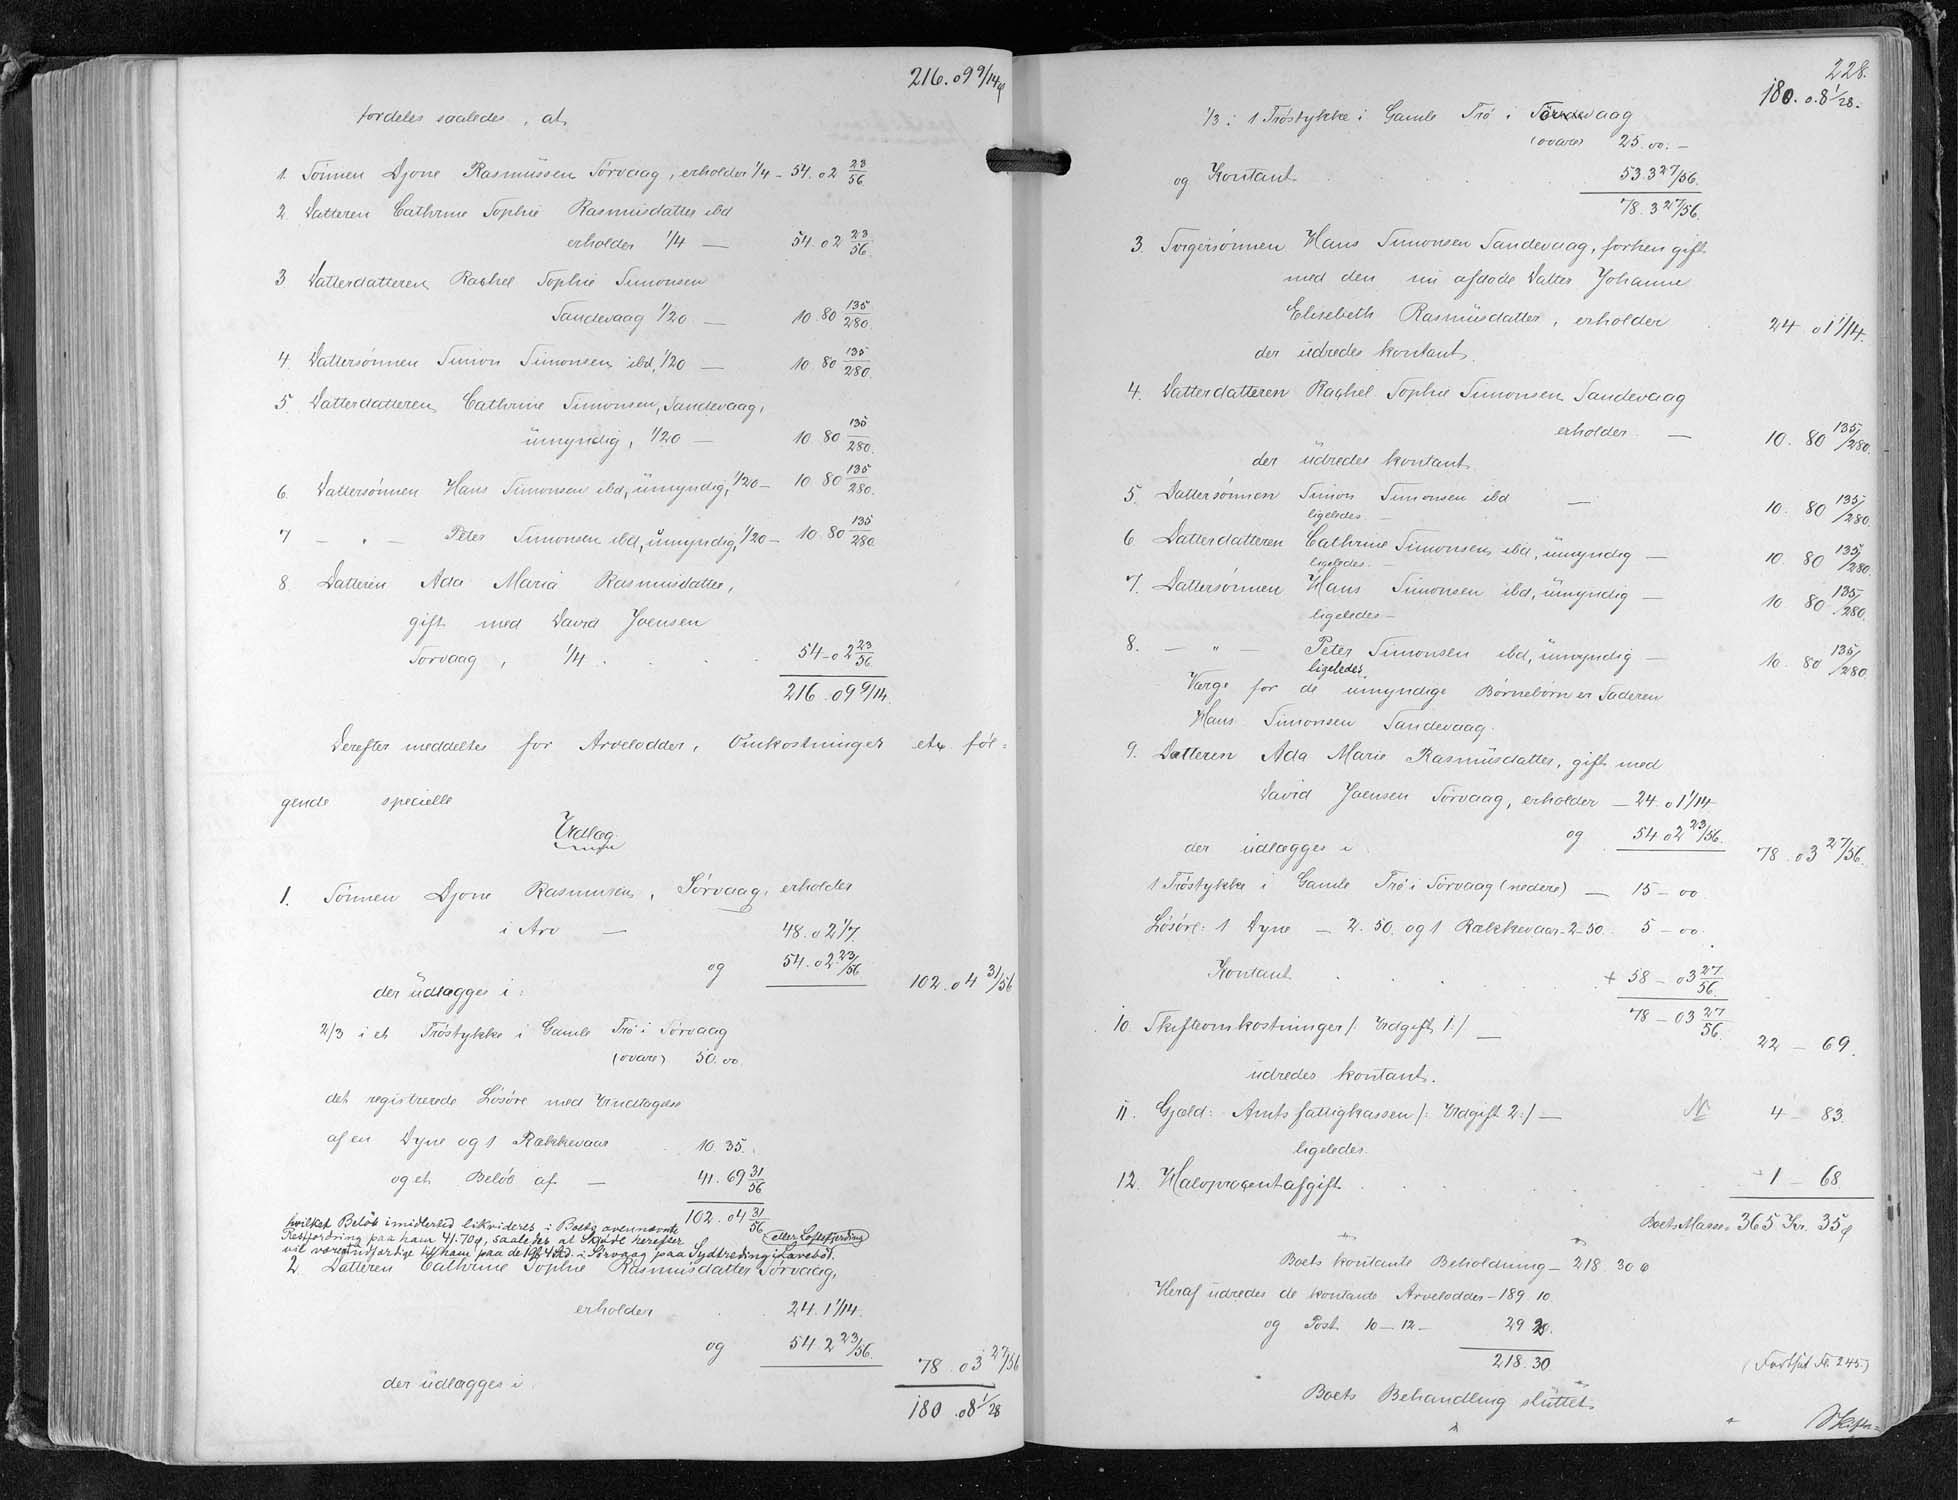 216.09 9/14
fordeles saaledes, at
1. Sönnen Djone Rasmussen Sörvaag, erholder 1/4 - 54.02 23/56
2. Datteren Cathrine Sophie Rasmusdatter ibd
erholder 1/4 — 54.02 23/56.
3 Datterdatteren Rachel Sophie Simonsen
Sandevaag 1/20 — 10.80 135/280.
4. Dattersönnen Simon Simonsen ibd, 1/20 — 10.80 135/280.
5. Datterdatteren Cathrine Simonsen, Sandevaag,
umyndig, 1/20 — 10 80 135/280.
6. Dattersönnen Hans Simonsen ibd, umyndig, 1/20 — 10 80 135/280.
7 — " — Peter Simonsen ibd, umyndig, 1/20 — 10.80 135/280
8. Datteren Ada Maria Rasmusdatter,
gift med David Joensen
Sörvaag, 1/4 . . . 54-02 23/56
216.09 9/14.
Derefter meddeltes for Arvelodder, Omkostninger etc. föl=
gende specielle
Udlæg.
1. Sönnen Djone Rasmussen, Sörvaag, erholder
i Arv — 48.02 1/7
og 54.02 23/56 102.04 31/56
der udlægges i:
2/3 i et Tröstykke i Gamle Trö i Sörvaag
(ovare) 50.00.
det registrerede Lösöre med Undtagelse
af en Dyne og 1 Rækkevaar 10.35.
og et Belöb af — 41.69 31/56
102.04 31/56
hvilket Belöb imidlertid likvideres i Boets ovennævnte
Restfordring paa ham 41.70 ø, saaledes at Skjöde herefter (eller Loftsfjerding)
vil være at udfærdige til ham paa de i Sörvaag paa Sydtreding i Lavebö.
2. Datteren Cathrine Sophie Rasmusdatter Sörvaag,
erholder 24.1 1/14.
og 54.2 23/56. 78.03 27/56
der udlægges i. 180.08 1/28
228.
180.08 1/28.
1/3 i 1 Tröstykke i Gamle Trö i Sörvaag
(ovare) 25.00. -
og Kontant . . . 53.3 27/56.
78.3 27/56.
3. Svigersönnen Hans Simonsen Sandevaag, forhen gift
med den nu afdöde Datter Johanne
Elisebeth Rasmusdatter, erholder . 24 01 1/14.
der udredes kontant.
4. Datterdatteren Rachel Sophie Simonsen Sandevaag
erholder — 10.80 135/280.
der udredes kontant.
5. Dattersönnen Simon Simonsen ibd — 10.80 135/280.
ligeledes —
6 Datterdatteren Cathrine Simonsen ibd, umyndig — 10 80 135/280.
ligeledes. —
7. Dattersönnen Hans Simonsen ibd, umyndig — 10 80 135/280.
ligeledes —
8. — " — Peter Simonsen ibd, umyndig — 10.80 135/280
ligeledes.
Værge for de umyndige Börnebörn er Faderen
Hans Simonsen Sandevaag.
9. Datteren Ada Marie Rasmusdatter, gift med
David Joensen Sörvaag, erholder — 24.01 1/14
og 54.02 23/56. 78.03 27/56.
der udlægges i
1 Tröstykke i Gamle Trö i Sörvaag (nedere) — 15-00
Lösöre: 1 Dyne — 2.50. og 1 Rækkevaar 2-50. 5-00.
Kontant . . . + 58-03 27/56.
78-03 27/56.
10. Skifteomkostninger /: Udgift 1:/ — 22-69.
udredes kontant.
11. Gjæld: Amtsfattigkassen /: Udgift 2:/ — 4-83.
ligeledes.
12. Halvprocentafgift . . . 1-68
Boets Masse = 365 Kr. 35 ø
Boets kontante Beholdning — 218.30 ø
Heraf udredes de kontante Arvelodder — 189.10
og Post 10-12 — 29 20.
218.30
(Fortsat Fo. 245)
Boets Behandling sluttet.
Skifte=